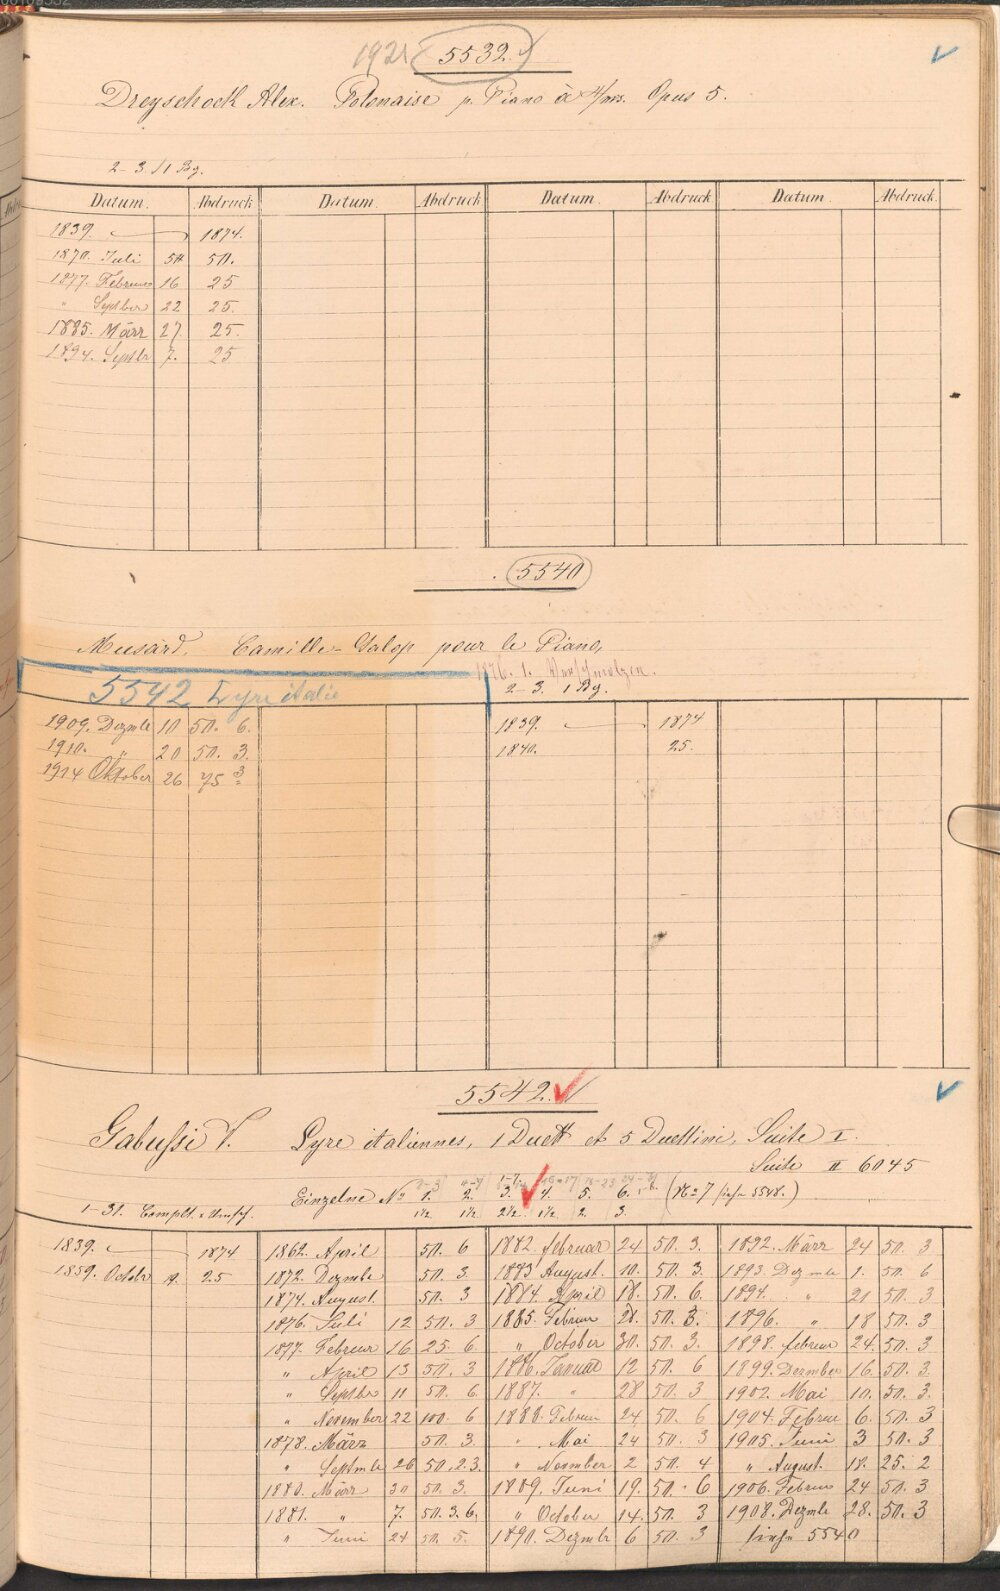 1921 5532.
Dreyschock Alex. Polonaise p. Piano à 4/ms. Opus 5.
2-3. /1 Bg.
Datum. Abdruck Datum. Abdruck Datum. Abdruck Datum. Abdruck
1839. 1874.
1870. Juli 50.
1877. Februar 16 25
" Septber 22 25.
1885. März 27 25.
1894. Septbr 7. 25
5540
Musard, Camille-Galop pour le Piano,
1876. 1.
5542 Lyre italie
2-3. 1 Bg.
1909. Dezmbr 10 50. 6. 1839. 1874
1910. " 20 50. 3. 1840. 25.
1914 Oktober 26 75 3
5542.
Gabussi V. Lyre italiennes, 1 Duett et 5 Duettini, Suite I.
Suite II 6045
Einzelne No 1. 2. 3. 4. 5. 6. (No 7 siehe 5548.)
1-31. Complt. Umsch. 1½ 1½ 2½ 1½ 2. 3.
1839. 1874 1862. April 50. 6 1882. februar 24 50. 3. 1892. März 24 50. 3
1859. Octobr 25 1872. Dezmbr 50. 3. 1883 August. 10. 50. 3. 1893. Dezmbr 1. 50. 6
1874. August. 50. 3 1884. April 18. 50. 6. 1894. " 21 50. 3
1876. Juli 12 50. 3 1885. Februar 21. 50. 3. 1896. " 18 50. 3
1877. Februar 16 25. 6 " October 30. 50. 3. 1898. februar 24. 50. 3
" April 13 50. 3 1886. Januar 12 50. 6 1899. Dezember 16. 50. 3
" Septbr 11 50. 6. 1887. " 28 50. 3 1902. Mai 10. 50. 3.
" November 22 100. 6 1888. Februar 24 50. 6 1904. Februar 6. 50. 3
1878. März 50. 3. " Mai 24 50. 3 1905. Juni 3 50. 3
" Septmbr 26 50. 2.3. " November 2 50. 4 " August. 18. 25. 2
1880. März 30 50. 3. 1889. Juni 19. 50. 6 1906. Februar 24 50. 3
1881. " 7. 50. 3. 6. " October 14. 50. 3 1908. Dezmbr 28. 50. 3
" Juni 24 50. 5. 1890. Dezmbr 6 50. 3 siehe 5540